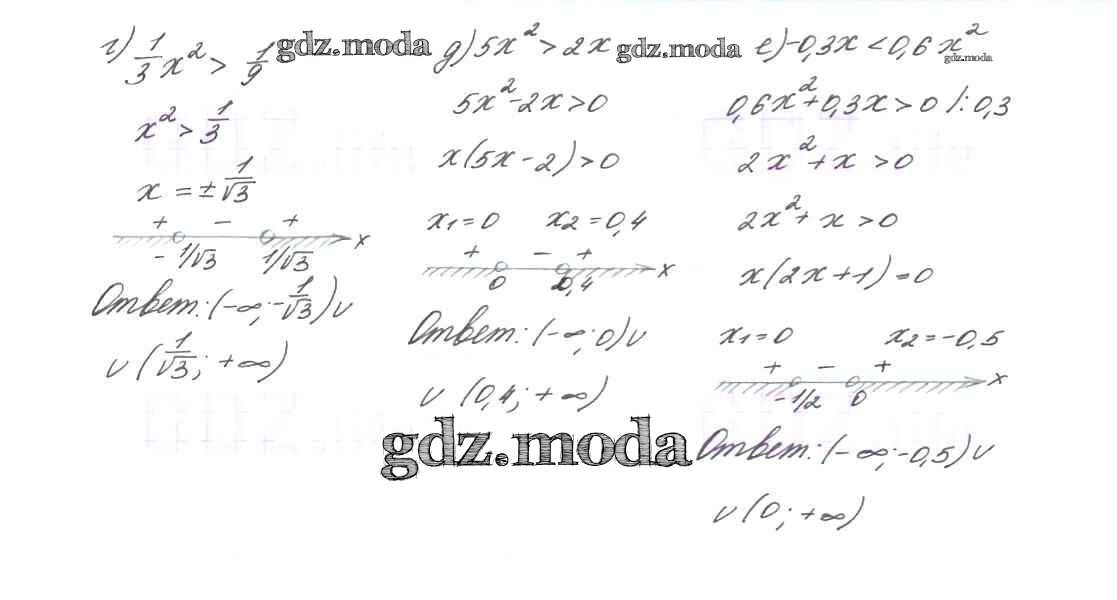 г) 1/3 x² > 1/9
x² > 1/3
x = ± 1/√3
+ − +
- 1/√3 1/√3 x
Ответ: (-∞; -1/√3) ∪
∪ (1/√3; +∞)
gdz.moda
д) 5x² > 2x
5x² - 2x > 0
x(5x - 2) > 0
x1 = 0 x2 = 0,4
+ − +
0 0,4 x
Ответ: (-∞; 0) ∪
∪ (0,4; +∞)
gdz.moda
е) -0,3x < 0,6x²
gdz.moda
0,6x² + 0,3x > 0 /: 0,3
2x² + x > 0
2x² + x > 0
x(2x + 1) = 0
x1 = 0 x2 = -0,5
+ − +
-1/2 0 x
Ответ: (-∞; -0,5) ∪
∪ (0; +∞)
gdz.moda